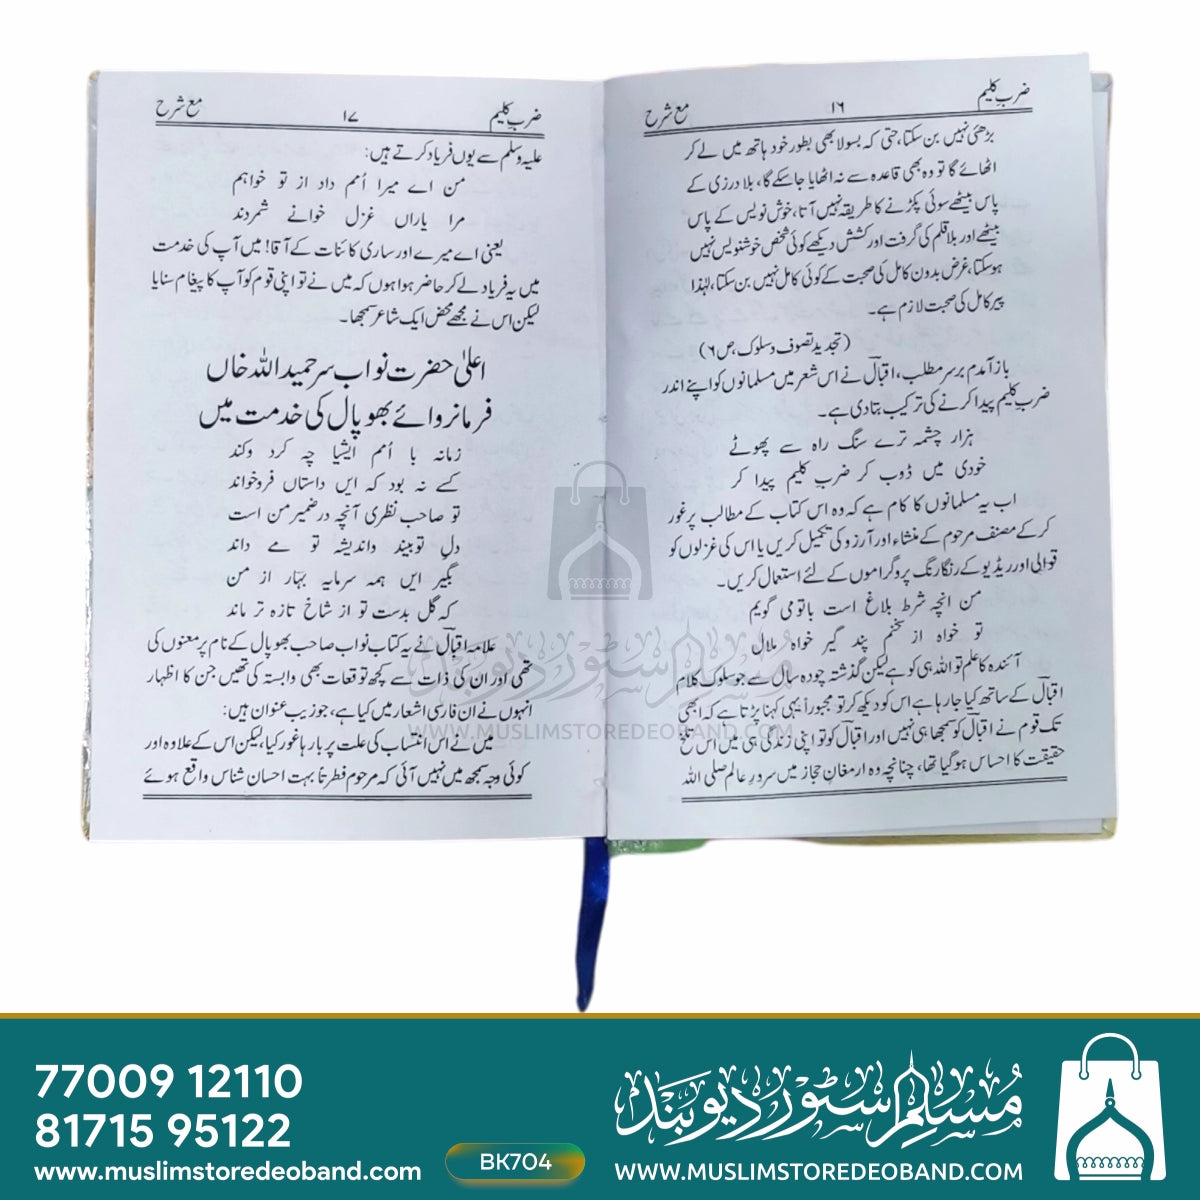 ضربِ کلیم ۱۶ مع شرح
بڑھئی نہیں بن سکتا، حتیٰ کہ بسولا بھی بطور خود ہاتھ میں لے کر
اٹھائے گا تو وہ بھی قاعدہ سے نہ اٹھایا جاسکے گا، بلا درزی کے
پاس بیٹھے سوئی پکڑنے کا طریقہ نہیں آتا، خوش نویس کے پاس
بیٹھے اور بلا قلم کی گرفت اور کشش دیکھے کوئی شخص خوشنویس نہیں
ہوسکتا، غرض بدون کامل کی صحبت کے کوئی کامل نہیں بن سکتا، لہٰذا
پیر کامل کی صحبت لازم ہے۔
(تجدید تصوف و سلوک، ص ۶)
باز آمدم بر سر مطلب، اقبالؔ نے اس شعر میں مسلمانوں کو اپنے اندر
ضربِ کلیم پیدا کرنے کی ترکیب بتادی ہے۔
ہزار چشمہ ترے سنگ راہ سے پھوٹے
خودی میں ڈوب کر ضرب کلیم پیدا کر
اب یہ مسلمانوں کا کام ہے کہ وہ اس کتاب کے مطالب پر غور
کرکے مصنف مرحوم کے منشاء اور آرزو کی تکمیل کریں یا اس کی غزلوں کو
قوالی اور ریڈیو کے رنگارنگ پروگراموں کے لئے استعمال کریں۔
من انچہ شرط بلاغ است باتومی گویم
تو خواہ از سخنم پند گیر خواہ ملال
آئندہ کا علم تو اللہ ہی کو ہے لیکن گذشتہ چودہ سال سے جو سلوک کلام
اقبالؔ کے ساتھ کیا جارہا ہے اس کو دیکھ کر تو مجبوراً یہی کہنا پڑتا ہے کہ ابھی
تک قوم نے اقبالؔ کو سمجھا ہی نہیں اور اقبالؔ کو تو اپنی زندگی ہی میں اس تلخ
حقیقت کا احساس ہوگیا تھا، چنانچہ وہ ارمغانِ حجاز میں سرورِ عالم صلی اللہ
ضربِ کلیم ۱۷ مع شرح
علیہ وسلم سے یوں فریاد کرتے ہیں:
من اے میرا اُمم داد از تو خواہم
مرا یاراں غزل خوانے شمردند
یعنی اے میرے اور ساری کائنات کے آقا! میں آپ کی خدمت
میں یہ فریاد لے کر حاضر ہوا ہوں کہ میں نے تو اپنی قوم کو آپ کا پیغام سنایا
لیکن اس نے مجھے محض ایک شاعر سمجھا۔
اعلیٰ حضرت نواب سر حمید اللہ خاں
فرمانروائے بھوپال کی خدمت میں
زمانہ با اُمم ایشیا چہ کرد وکند
کسے نہ بود کہ ایں داستاں فروخواند
تو صاحب نظری آنچہ در ضمیر من است
دلِ تو بیند واندیشہ تو مے داند
بگیر ایں ہمہ سرمایہ بہار از من
کہ گل بدست تو از شاخ تازہ تر ماند
علامہ اقبالؔ نے یہ کتاب نواب صاحب بھوپال کے نام پر معنوں کی
تھی اور ان کی ذات سے کچھ توقعات بھی وابستہ کی تھیں جن کا اظہار
انہوں نے ان فارسی اشعار میں کیا ہے، جو زیب عنوان ہیں:
میں نے اس انتساب کی علت پر بارہا غور کیا، لیکن اس کے علاوہ اور
کوئی وجہ سمجھ میں نہیں آئی کہ مرحوم فطرتاً بہت احسان شناس واقع ہوئے
مُسلم سٹور دیوبند
WWW.MUSLIMSTOREDEOBAND.COM
77009 12110
81715 95122
www.muslimstoredeoband.com
BK704
مُسلم سٹور دیوبند
WWW.MUSLIMSTOREDEOBAND.COM